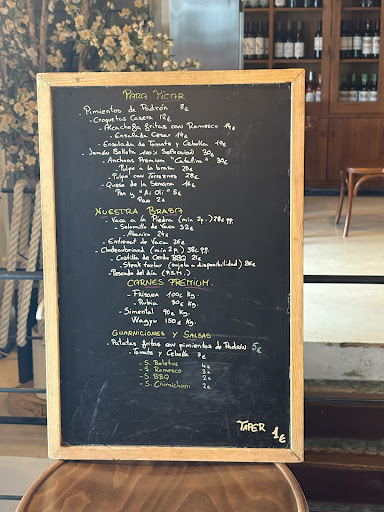 PARA PICAR
- Pimientos de Padrón 8€
- Croquetas Casera 12€
- Alcachofa fritas con Romesco 14€
- Ensalada Cesar 14€
- Ensalada de Tomate y Cebolla 14€
Jamón Bellota 100% Selección 30€
- Anchoas Premium "Catalina" 30€
- Pulpo a la brasa 25€
- Pulpo con Torreznos 28€
- Queso de la Semana 16€
Pan y "Ai Oli" 5€
Pan 2€
NUESTRA BRASA
- Vaca a la Piedra (min 2p.) 28€ pp.
- Solomillo de Vaca 32€
- Abanico 24€
- Entrecot de Vaca 26€
- Chateaubriand (min 2p.) 38€ pp.
- Costilla de Cerdo BBQ 21€
- Steak tartar (sujeto a disponibilidad) 26€
- Pescado del día (P.S.M.)
CARNES PREMIUM.
- Frisona 100€ Kg.
- Rubia 80€ Kg.
- Simental 90€ Kg.
Wagyu 150€ Kg.
GUARNICIONES Y SALSAS
- Patatas fritas con pimientos de Padrón 5€
- Tomate y Cebolla 7€
- S. Boletus 4€
- S. Romesco 3€
- S. BBQ 2€
- S. Chimichurri 3€
TAPER 1€